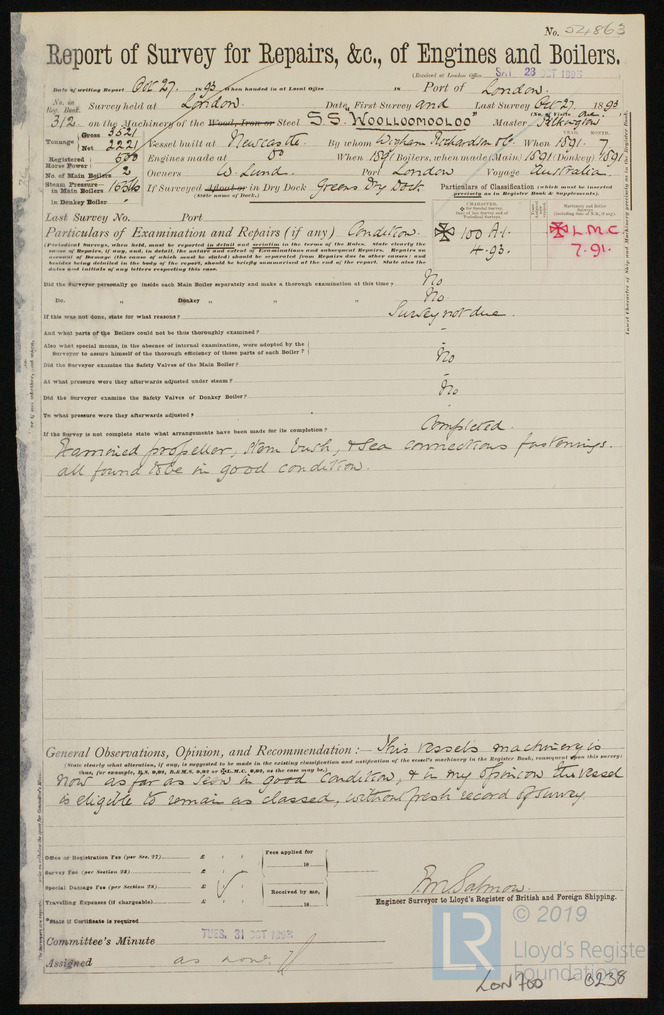 No. 54863
Report of Survey for Repairs, &c., of Engines and Boilers.
(Received at London Office SAT. 28 OCT 1893
Date of writing Report Oct 27. 1893 When handed in at Local Office 18 Port of London.
No. in Reg. Book. 312 Survey held at London. Date, First Survey and Last Survey Oct 27. 1893
on the Machinery of the Wood, Iron or Steel S.S. "WOOLLOOMOOLOO" Master Pilkington
Tonnage Gross 3521 Net 2221 Vessel built at Newcastle By whom Wigham Richardson & Co. When 1891 7
Registered Horse Power 500 Engines made at Do When 1891 Boilers, when made (Main) 1891 (Donkey) 1891
No. of Main Boilers 2 Owners W. Lund. Port London Voyage Australia.
Steam Pressure in Main Boilers 160 lbs If Surveyed Afloat or in Dry Dock Greens Dry Dock
(State name of Dock.)
in Donkey Boiler
Particulars of Classification (which must be inserted precisely as in Register Book & Supplements).
Last Survey No. Port
100 A1. 4.93.
L M C 7.91.
Particulars of Examination and Repairs (if any) Condition.
(Periodical Surveys, when held, must be reported in detail and seriatim in the terms of the Rules. State clearly the
cause of Repairs, if any, and, in detail, the nature and extent of Examinations and subsequent Repairs. Repairs on
account of Damage (the cause of which must be stated) should be separated from Repairs due to other causes; and
besides being detailed in the body of the report, should be briefly summarised at the end of the report. State also the
dates and initials of any letters respecting this case.
Did the Surveyor personally go inside each Main Boiler separately and make a thorough examination at this time? No
Do. " Donkey " " " " No.
If this was not done, state for what reasons? Survey not due.
And what parts of the Boilers could not be thus thoroughly examined? -
Also what special means, in the absence of internal examination, were adopted by the
Surveyor to assure himself of the thorough efficiency of those parts of each Boiler? -
Did the Surveyor examine the Safety Valves of the Main Boiler? No
At what pressure were they afterwards adjusted under steam? -
Did the Surveyor examine the Safety Valves of Donkey Boiler? No
To what pressure were they afterwards adjusted, -
If the Survey is not complete state what arrangements have been made for its completion? Completed.
Examined propeller, stern bush, & sea connections fastenings.
all found to be in good condition.
General Observations, Opinion, and Recommendation:— This vessel's machinery is
(State clearly what alteration, if any, is suggested to be made in the existing classification and notification of the vessel's machinery in the Register Book, consequent upon this survey;
thus, for example, B.S. 9,93, B.&M.S. 9.93 or L.M.C. 9,93, as the case may be.)
now as far as seen in good condition, & in my opinion the vessel
is eligible to remain as classed, without fresh record of survey.
Office or Registration Fee (per Sec. 27) £ : :
Survey Fee (per Section 28) £ : :
Special Damage Fee (per Section 28) £ : :
Travelling Expenses (if chargeable) £ : :
Fees applied for 18
Received by me, 18
Salmon.
Engineer Surveyor to Lloyd's Register of British and Foreign Shipping.
*State if Certificate is required
Committee's Minute TUES. 31 OCT 1893
Assigned as now
LR © 2019
Lloyd's Register
Foundation
LON 700 - 0238